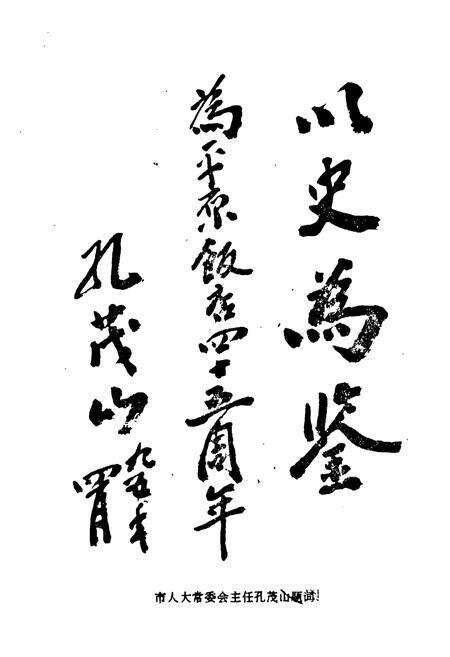 以史為鉴
為平原飯店四十五周年
孔茂山
九五年
四月
市人大常委会主任孔茂山题词